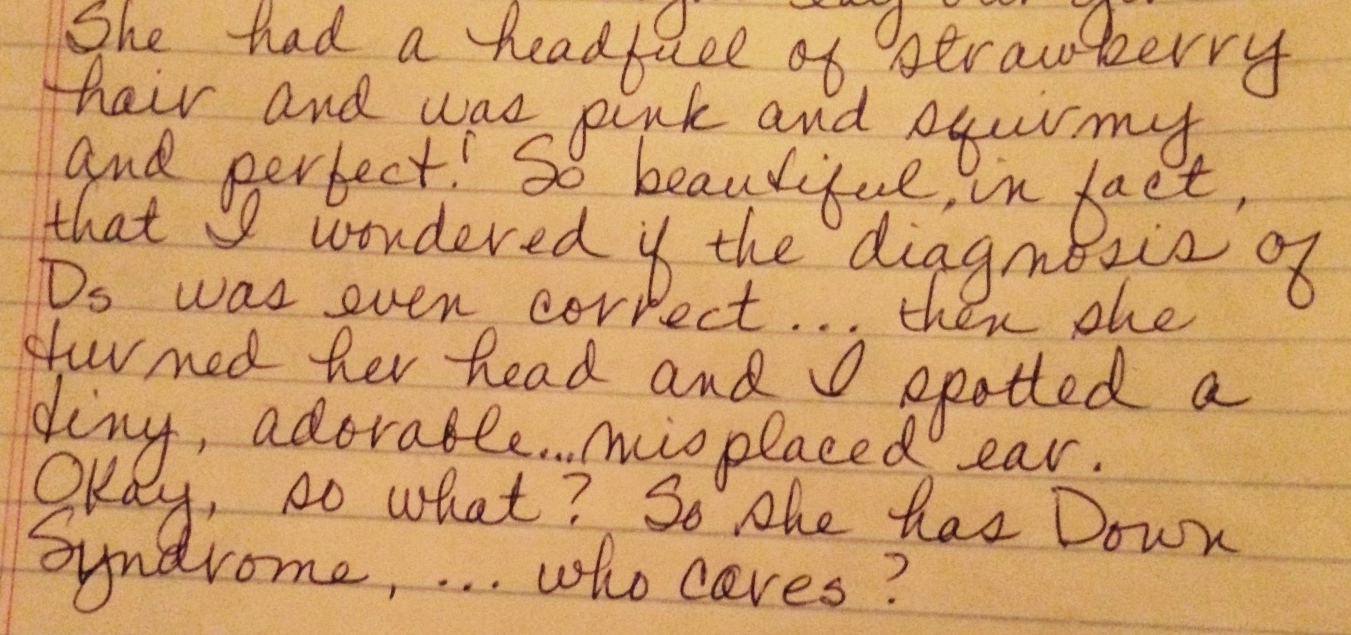 She had a headfull of strawberry
hair and was pink and squirmy
and perfect! So beautiful, in fact,
that I wondered if the diagnosis of
Ds was even correct... then she
turned her head and I spotted a
tiny, adorable...misplaced ear.
Okay, so what? So she has Down
Syndrome, ... who cares?